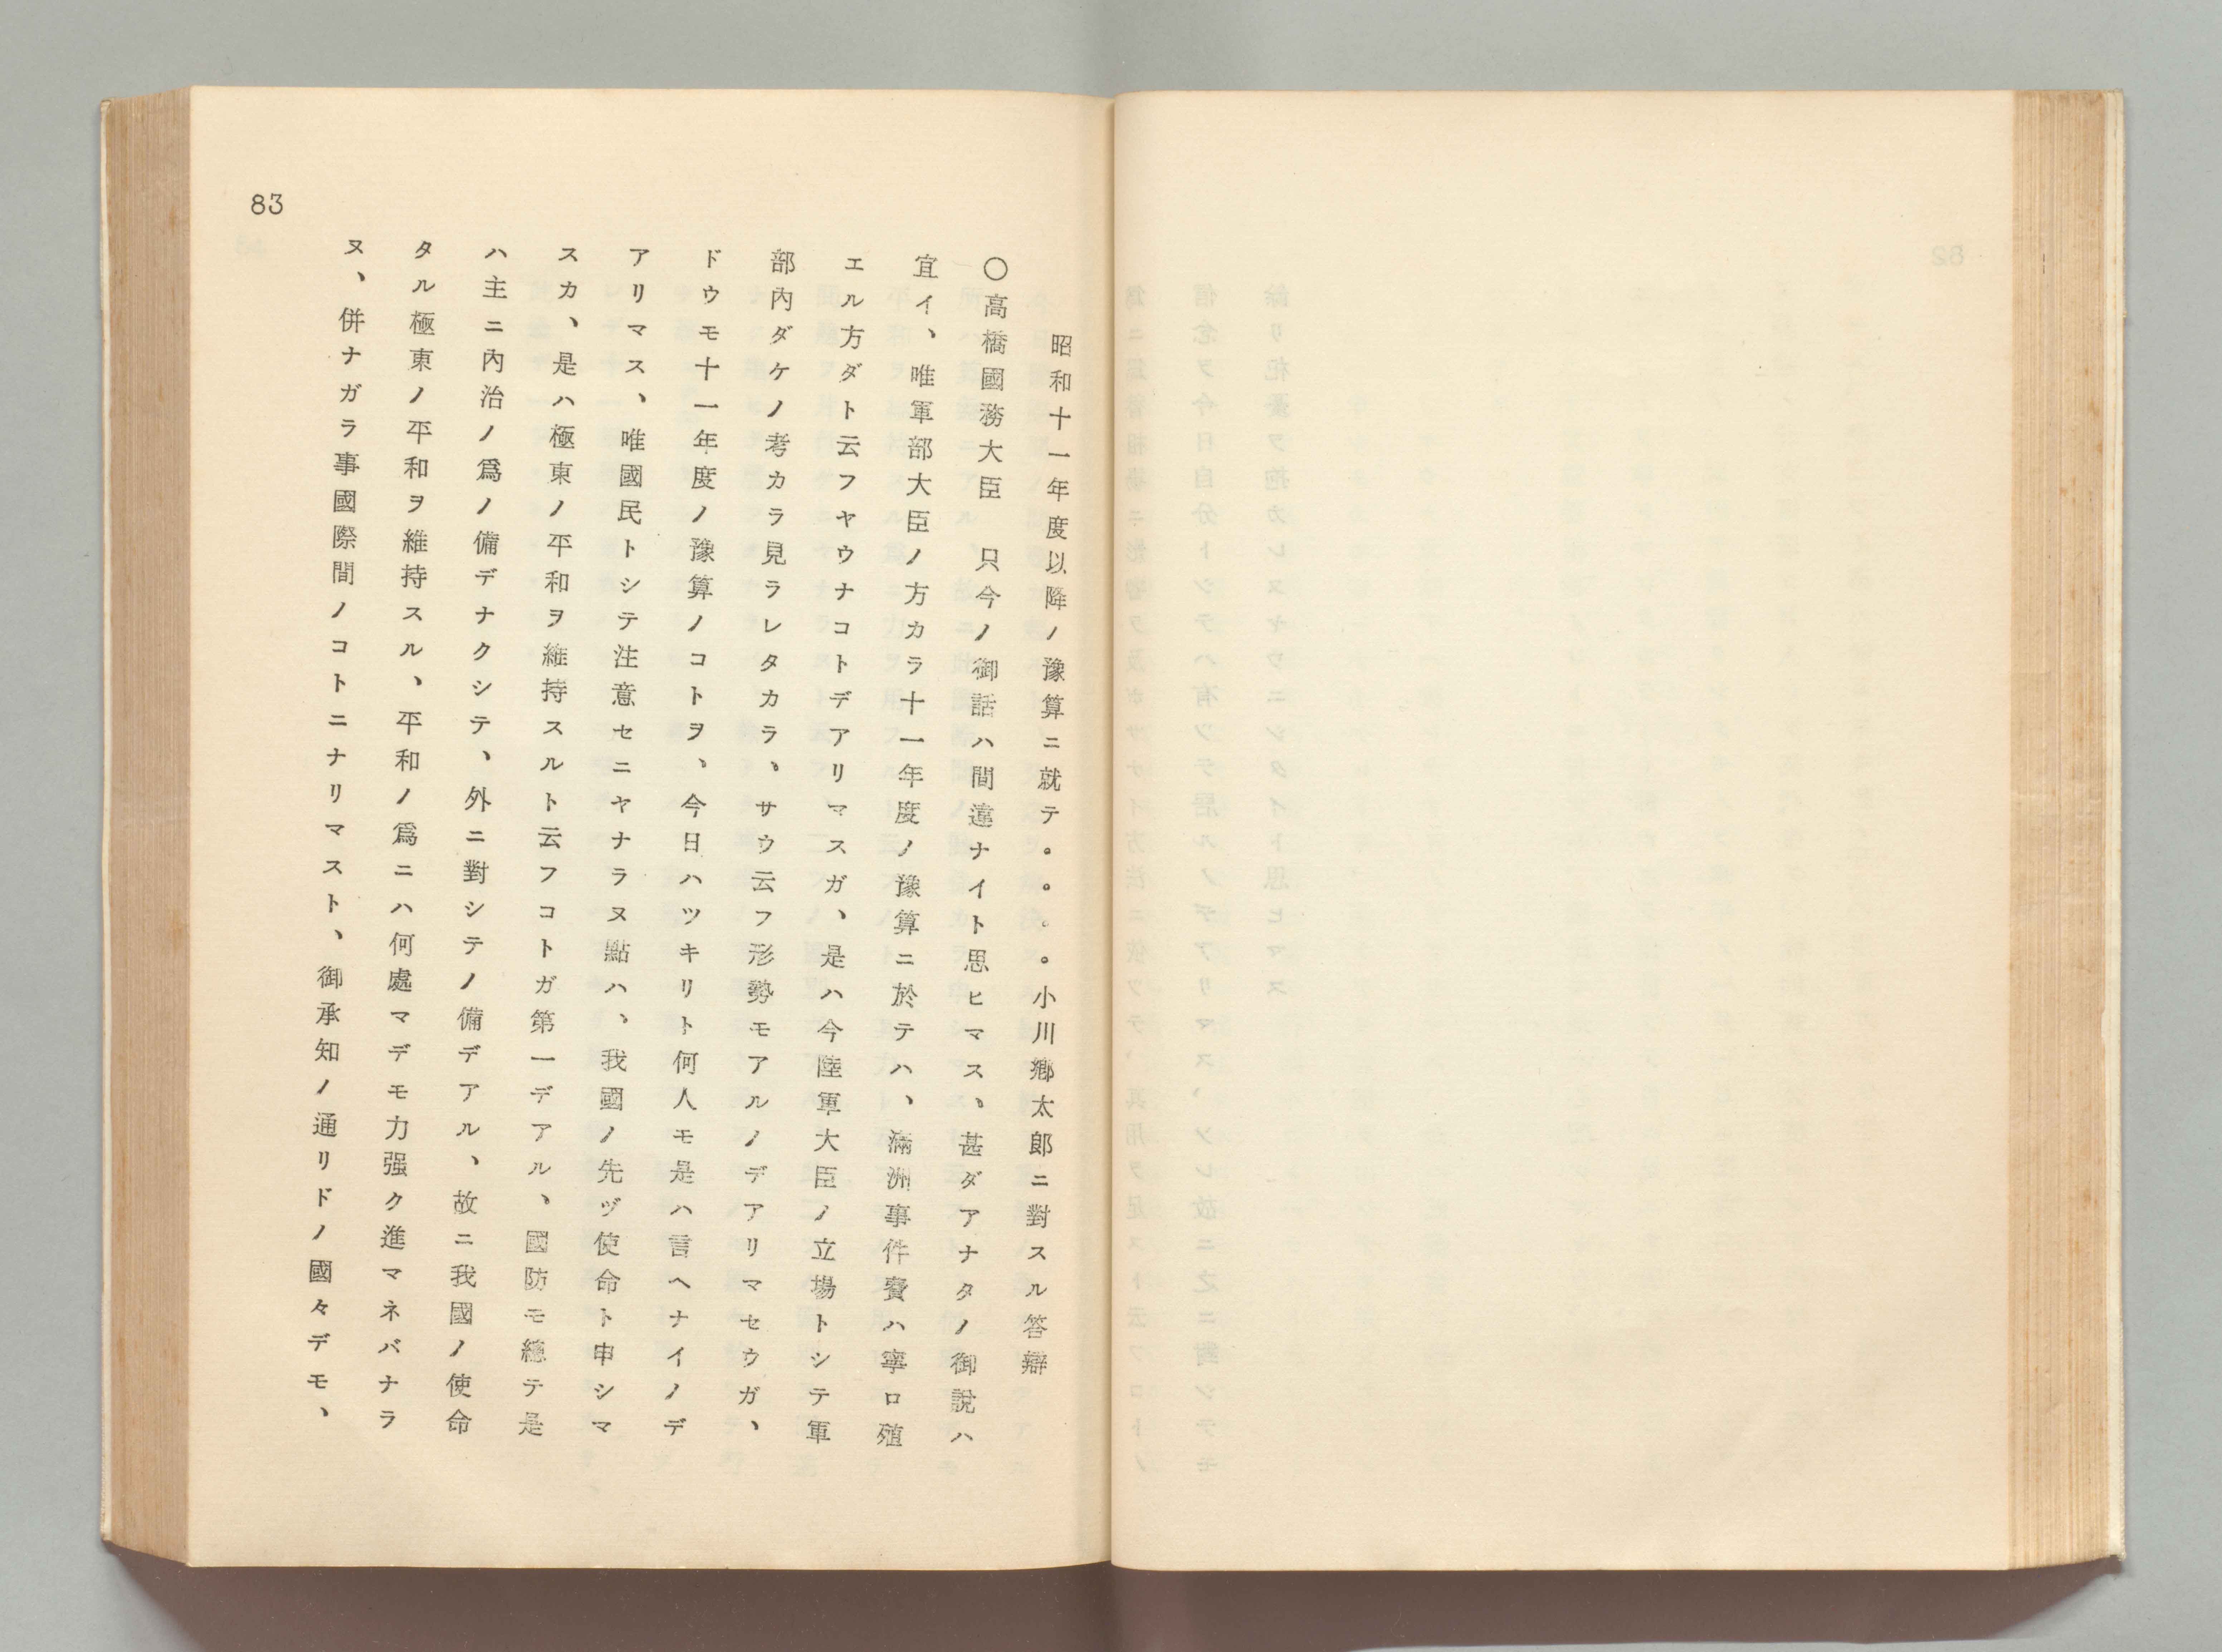 昭和十一年度以降ノ豫算ニ就テ。。。。小川鄕太郎ニ對スル答辯
〇高橋國務大臣　只今ノ御話ハ間違ナイト思ヒマス、甚ダアナタノ御說ハ
宜イ、唯軍部大臣ノ方カラ十一年度ノ豫算ニ於テハ、滿洲事件費ハ寧ロ殖
エル方ダト云フヤウナコトデアリマスガ、是ハ今陸軍大臣ノ立場トシテ軍
部內ダケノ考カラ見ラレタカラ、サウ云フ形勢モアルノデアリマセウガ、
ドウモ十一年度ノ豫算ノコトヲ、今日ハツキリト何人モ是ハ言ヘナイノデ
アリマス、唯國民トシテ注意セニヤナラヌ點ハ、我國ノ先ヅ使命ト申シマ
スカ、是ハ極東ノ平和ヲ維持スルト云フコトガ第一デアル、國防モ總テ是
ハ主ニ內治ノ爲ノ備デナクシテ、外ニ對シテノ備デアル、故ニ我國ノ使命
タル極東ノ平和ヲ維持スル、平和ノ爲ニハ何處マデモ力强ク進マネバナラ
ヌ、併ナガラ事國際間ノコトニナリマスト、御承知ノ通リドノ國々デモ、
83